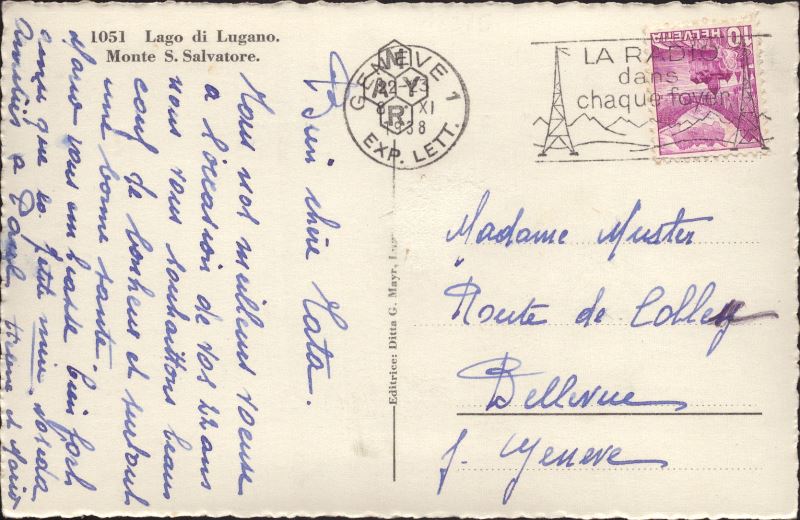 1051 Lago di Lugano.
Monte S. Salvatore.
Bien chère Tata.
Nous nos meilleurs voeux
a l'occasion de vos 22 ans
nous vous souhaittons beau
coup de bonheur et surtout
une bonne santé
Mario vous embrasse bien fort
que la petite
Amitiés a
Irene et Mario
Editrice: Ditta G. Mayr,
GENÈVE 1
22-23
XI
1938
EXP. LETT.
LA RADIO
dans
chaque foyer
HELVETIA
10
Madame Muster
Route de Colley
Bellevue
p. Geneve